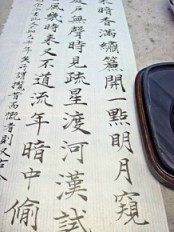 來暗香滿繡簾開一點明月窺
戶無聲時見疏星渡河漢試
風幾時來又不道流年暗中偷